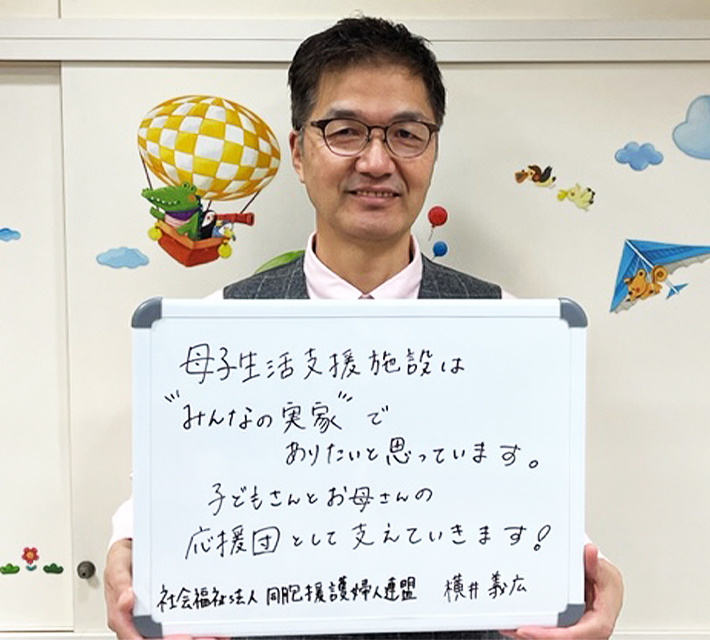 母子生活支援施設は
"みんなの実家"で
ありたいと思っています。
子どもさんとお母さんの
応援団として支えていきます!
社会福祉法人 同胞援護婦人連盟 横井義広